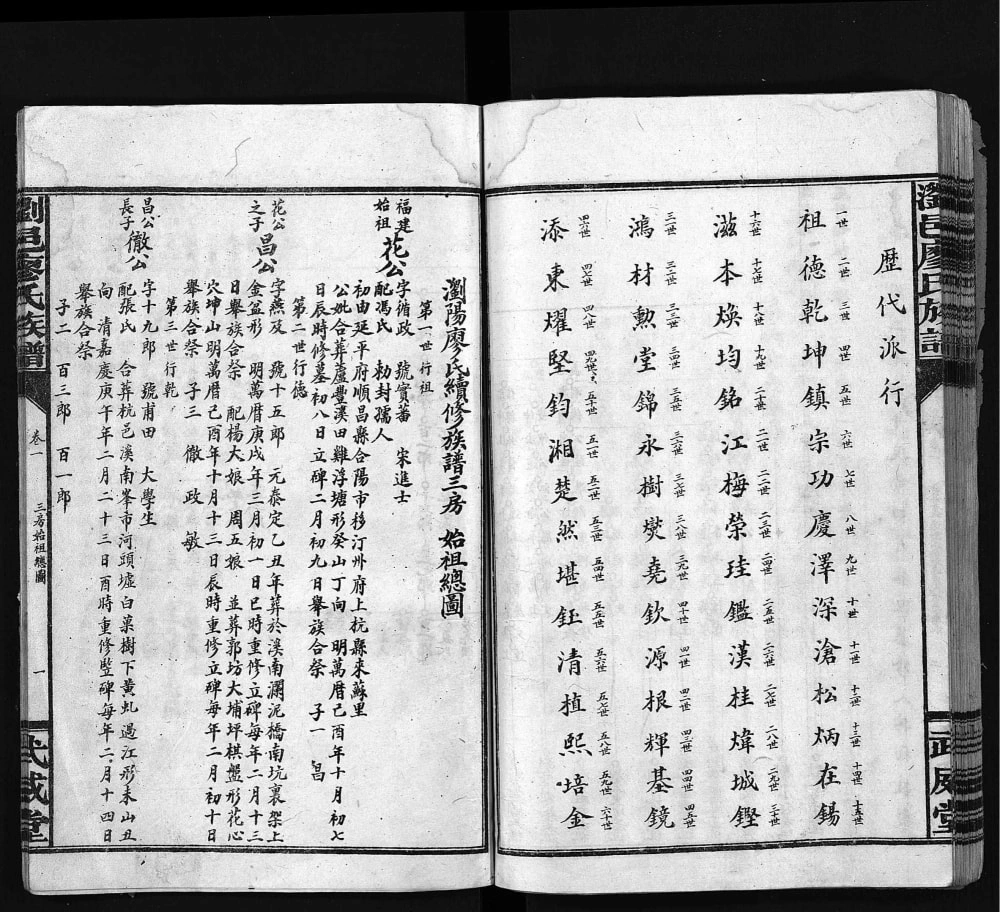 瀏邑廖氏族譜
武威堂
歷代派行
祖德乾坤鎮宗功慶澤深滄松炳在錫
一世 二世 三世 四世 五世 六世 七世 八世 九世 十世 十一世 十二世 十三世 十四世 十五世
滋本煥均銘江梅榮珪鑑漢桂煒城鏗
十六世 十七世 十八世 十九世 二十世 二一世 二二世 二三世 二四世 二五世 二六世 二七世 二八世 二九世 三十世
鴻材勳堂錦永樹爕堯欽源根輝基鏡
三一世 三二世 三三世 三四世 三五世 三六世 三七世 三八世 三九世 四十世 四一世 四二世 四三世 四四世 四五世
添東燿堅鈞湘楚然堪鈺清植熙培金
四六世 四七世 四八世 四九世 五十世 五一世 五二世 五三世 五四世 五五世 五六世 五七世 五八世 五九世 六十世
瀏陽廖氏續修族譜三房 始祖總圖
第一世行祖
福建始祖 花公 字脩政 號實蕃 宋進士
配馮氏 勅封孺人
初由延平府順昌縣合陽市移汀州府上杭縣來蘇里
公妣合葬蘆豐溪田雞浮塘形癸山丁向 明萬曆己酉年十月初七
日辰時修墓初八日立碑二月初九日舉族合祭 子一 昌
第二世行德
花公之子 昌公 字燕及 號十五郎 元泰定乙丑年葬於溪南瀾泥橋南坑裏架上
金盆形 明萬曆庚戌年三月初一日巳時重修立碑每年二月十三
日舉族合祭 配楊大娘 周五娘 並葬郭坊大埔坪棋盤形花心
穴坤山明萬曆己酉年十月十三日辰時重修立碑每年二月初十日
舉族合祭 子三 徹 政 敏
第三世行乾
昌公長子 徹公 字十九郎 號甫田 大學生
配張氏 合葬杭邑溪南峯市河頭墟白菓樹下黃虬過江形未山丑
向 清嘉慶庚午年二月二十三日酉時重修豎碑每年二月十四日
舉族合祭
子二 百三郎 百一郎
瀏邑廖氏族譜
卷一
三房始祖總圖
一
武威堂